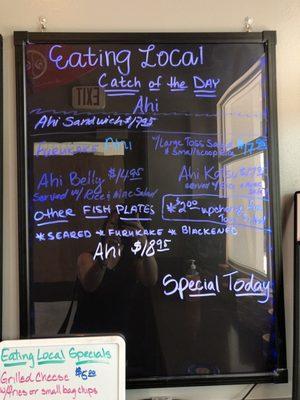 Eating Local
Catch of the DAY
EXIT
Ahi
Ahi Sandwich $17.95
Furukake Ahi
w/Large Toss Salad
& small scoop rice
Ahi Belly $14.95
Served w/Rice & Mac Salad
Ahi Katsu
Other FISH PLATES
*$2.00 upcharge
*SEARED *FURUKAKE *BLACKENED
Ahi $18.95
Special Today
Eating Local Specials
Grilled Cheese $5.00
w/fries or small bag chips